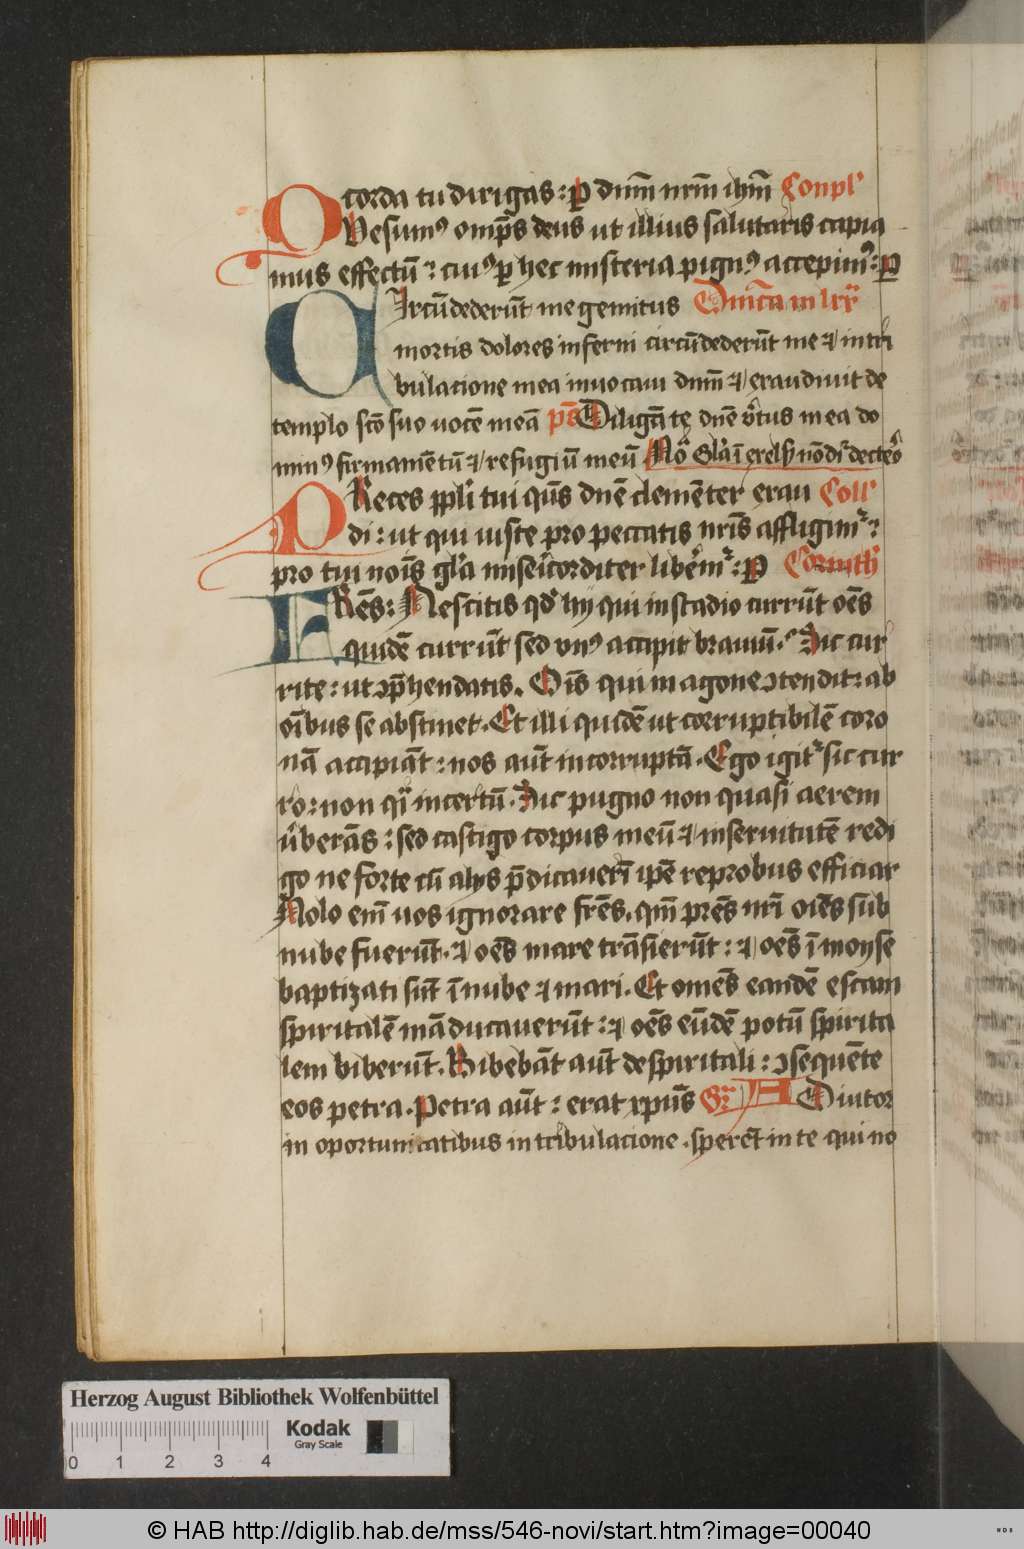 corda tu dirigas: ꝑ dnm̄ nrm̄ ihm̄ Conpl'
Qvesumꝰ omp̄s deus ut illius salutaris capia
mus effectū: cuiꝰ ꝑ hec misteria pignꝰ accepimꝰ: ꝑ
Circūdederūt me gemitus Dnīca in lxx̄
mortis dolores inferni circūdederūt me ⁊ in tri
bulacione mea inuocaui dnm̄ ⁊ exaudiuit de
templo scō suo uocē meā ps̄ Diligā te dnē v̓tus mea do
minꝰ firmamētū ⁊ refugiū meū
PReces ppl̓i tui qs̄ dnē clemēter exau Coll'
di: ut qui iuste pro peccatis nr̄is affligimr̓:
pro tui noīs gl̓a miseric̓orditer liberēmr̓: ꝑ Corinth'
FRēs: Nescitis qd̓ hij qui in stadio currūt oēs
quidē currūt sed vnꝰ accipit brauiū. Sic cur
rite: ut ꝯp̄hendatis. Oīs qui in agone ꝯtendit: ab
oībus se abstinet. Et illi quidē ut corruptibilē coro
nā accipiāt: nos aūt incorruptā. Ego igitr̓ sic cur
ro: non qi̓ in certū. Sic pugno non quasi aerem
v̓berās: sed castigo corpus meū ⁊ in seruitutē redi
go ne forte cū alijs p̄dicauerī ipē reprobus efficiar
Nolo em̄ uos ignorare frēs. qm̄ pr̄es nr̄i oīes sub
nube fuerūt. ⁊ oēs mare trāsierūt: ⁊ oēs ī moyse
baptizati sūt ī nube ⁊ mari. Et omēs eandē escam
spiritalē māducauerūt: ⁊ oēs eūdē potū spirita
lem biberūt. Bibebāt aūt de spiritali: ꝯsequēte
eos petra. Petra aūt: erat xpūs Gr̄ ADiutor
in oportunitatibus in tribulacione. sperēt in te qui no
Herzog August Bibliothek Wolfenbüttel
Kodak
Gray Scale
0 1 2 3 4
© HAB http://diglib.hab.de/mss/546-novi/start.htm?image=00040